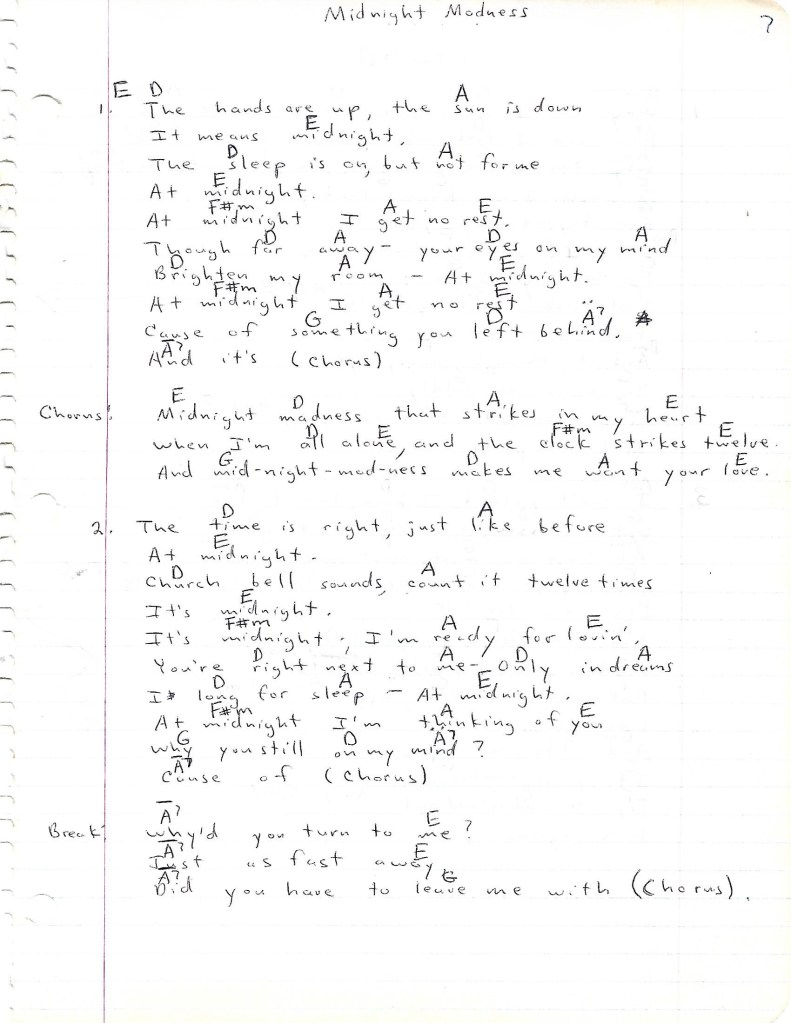 Midnight Madness
7
E D A
1. The hands are up, the sun is down
E
It means midnight.
D A
The sleep is on, but not for me
E
At midnight.
F#m A E
At midnight I get no rest.
D A D A
Though far away - your eyes on my mind
D A E
Brighten my room - At midnight.
F#m A E
At midnight I get no rest
G D A7
Cause of something you left behind.
A7
And it's (Chorus)
E D A E
Chorus: Midnight madness that strikes in my heart
D E F#m E
when I'm all alone, and the clock strikes twelve.
G D A E
And mid-night-mad-ness makes me want your love.
D A
2. The time is right, just like before
E
At midnight.
D A
Church bell sounds, count it twelve times
E
It's midnight.
F#m A E
It's midnight, I'm ready for lovin'.
D A D A
You're right next to me - Only in dreams
D A E
I long for sleep - At midnight.
F#m A E
At midnight I'm thinking of you
G D A7
why you still on my mind?
A7
Cause of (Chorus)
A7 E
Break: Why'd you turn to me?
A7 E
Just as fast away
A7 G
Did you have to leave me with (Chorus).